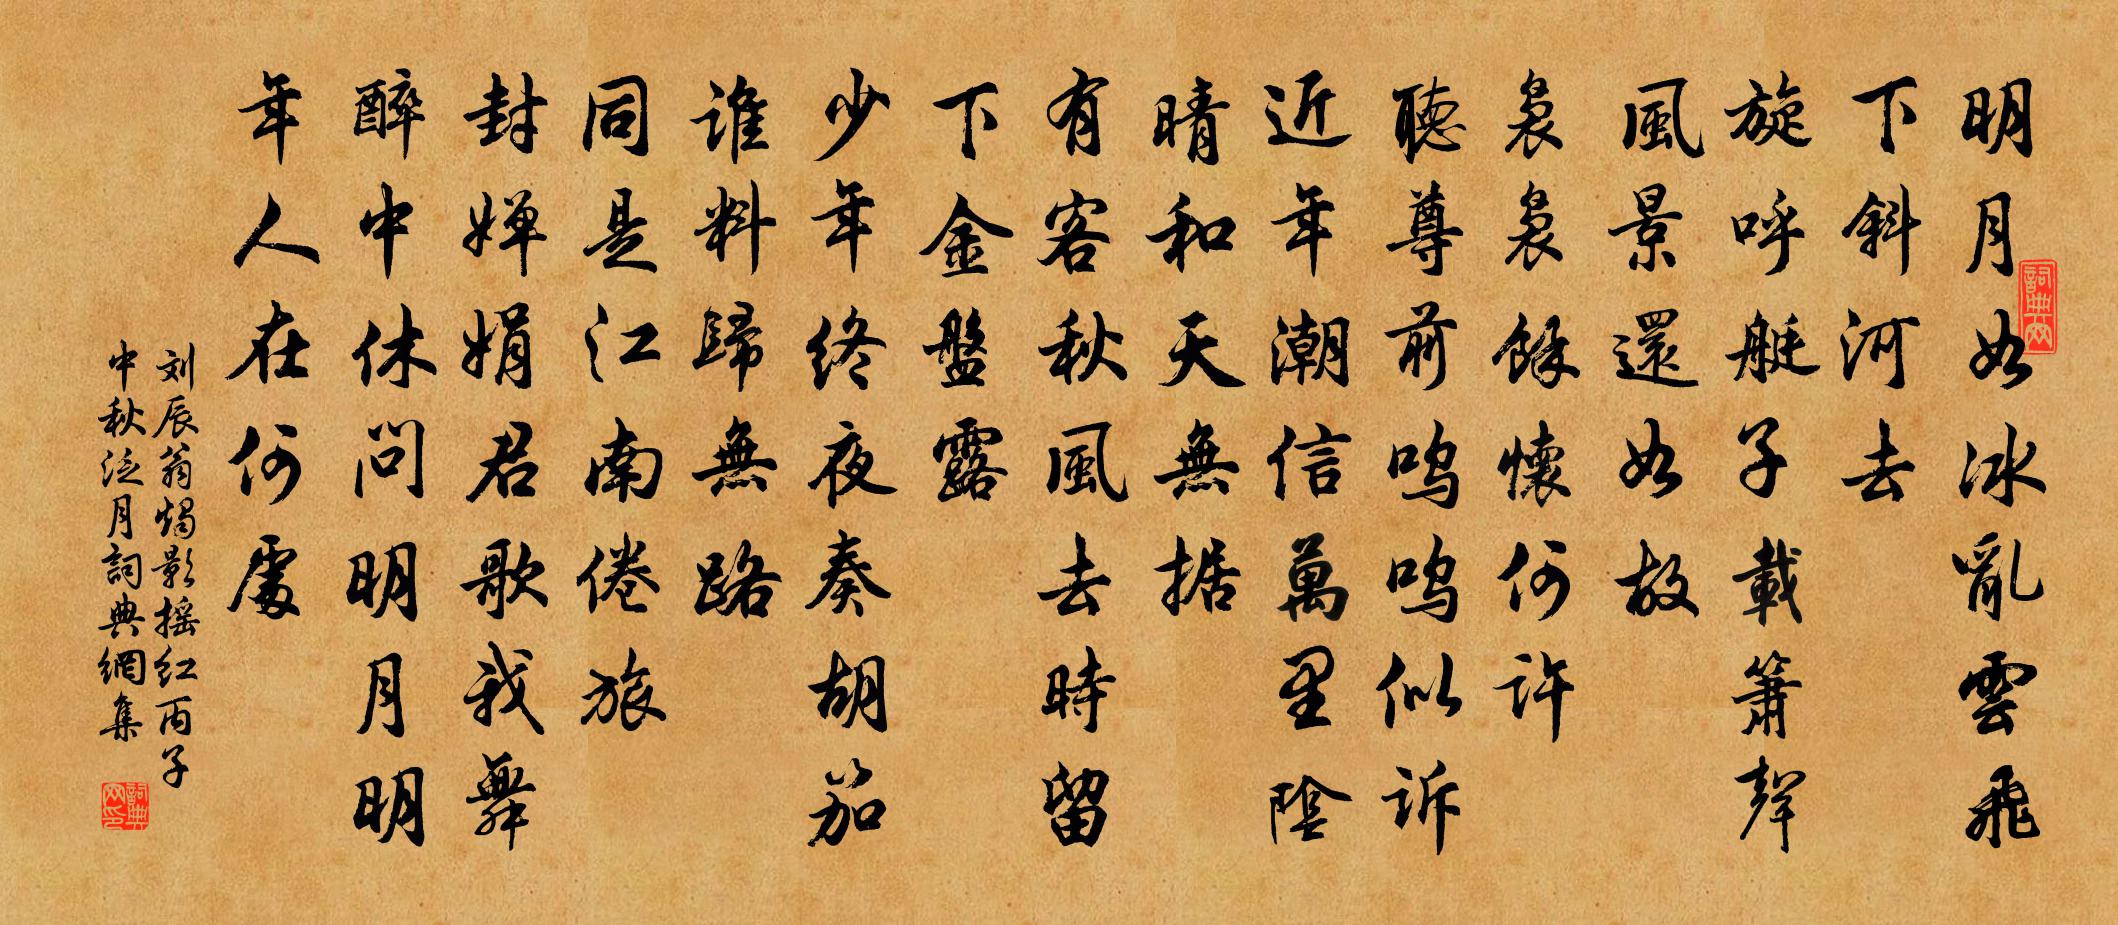 明月如冰亂雲飛
下斜河去
旋呼艇子載簫聲
風景還如故
裊裊餘懷何許
聽尊前嗚嗚似訴
近年潮信萬里陰
晴和天無据
有客秋風去時留
下金盤露
少年終夜奏胡笳
誰料歸無路
同是江南倦旅
對嬋娟君歌我舞
醉中休問明月明
年人在何處
刘辰翁燭影摇红丙子
中秋泛月詞典網集
詞典网
詞典网印